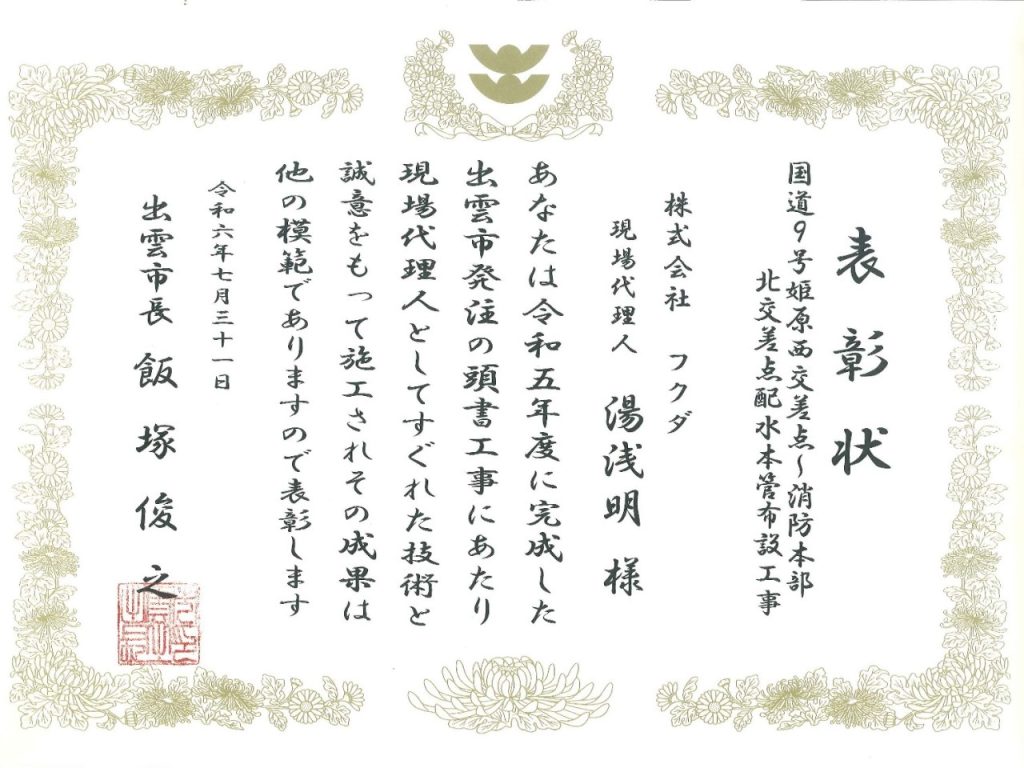 表彰状
国道9号姫原西交差点～消防本部
北交差点配水本管布設工事
株式会社 フクダ
現場代理人 湯浅明 様
あなたは令和五年度に完成した
出雲市発注の頭書工事にあたり
現場代理人としてすぐれた技術と
誠意をもって施工されその成果は
他の模範でありますので表彰します
令和六年七月三十一日
出雲市長 飯塚俊之